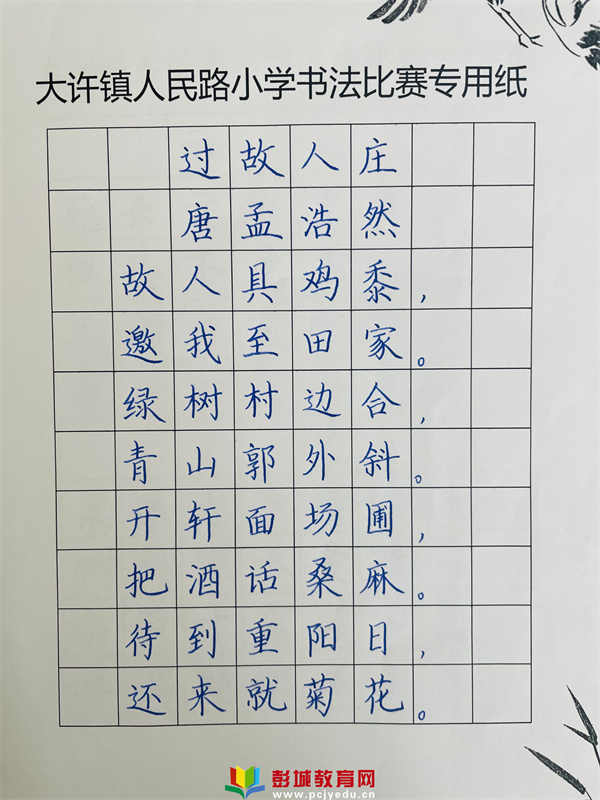 大许镇人民路小学书法比赛专用纸
过故人庄
唐孟浩然
故人具鸡黍，
邀我至田家。
绿树村边合，
青山郭外斜。
开轩面场圃，
把酒话桑麻。
待到重阳日，
还来就菊花。
彭城教育网
www.pcjyedu.cn